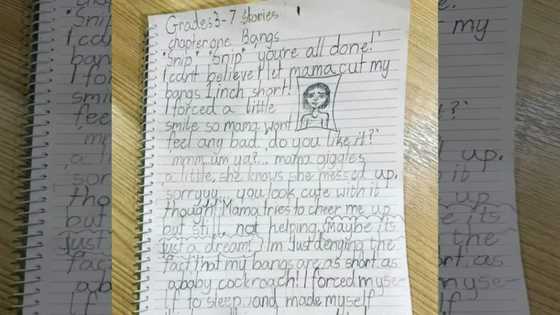 Grades 3-7 stories
chapter one Bangs
"Snip" "snip" you're all done!"
I cant believe I let mama cut my
bangs 1 inch short!
I forced a little
smile so mama wont
feel any bad, do you like it?"
mmm, um ya?.. mama giggles
a little, she knows she messed up.
sorryyy... you look cute with it
though! Mama tries to cheer me up
but still not helping, maybe its
just a dream! I'm just denying the
fact that my bangs are as short as
a baby cockroach! I forced myse-
lf to sleep and made myself